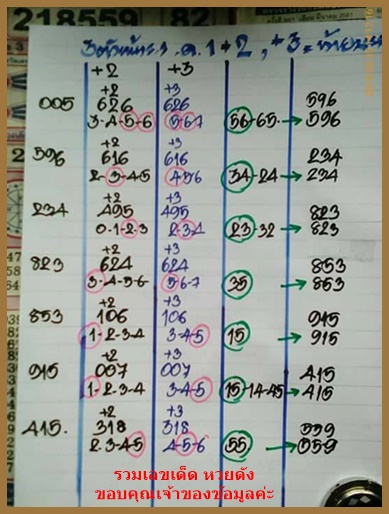 218559
+2 +3
+2 +3
005 626 626 596
3-4-5-6 5-6-7 56-65. → 596
+2 +3
596 616 616 234
2-3-4-5 4-5-6 34-24 → 234
+2 +3
234 495 495 823
0-1-2-3 2-3-4 23-32 → 823
+2 +3
823 624 624 853
3-4-5-6 5-6-7 35 → 853
+2 +3
853 106 106 915
1-2-3-4 3-4-5 15 → 915
+2 +3
915 007 007 415
1-2-3-4 3-4-5 15-14-45 → 415
+2 +3
415. 318 318 559
2-3-4-5 4-5-6 55 → 559
รวมเลขเด็ด หวยดัง
ขอบคุณเจ้าของข้อมูลค่ะ